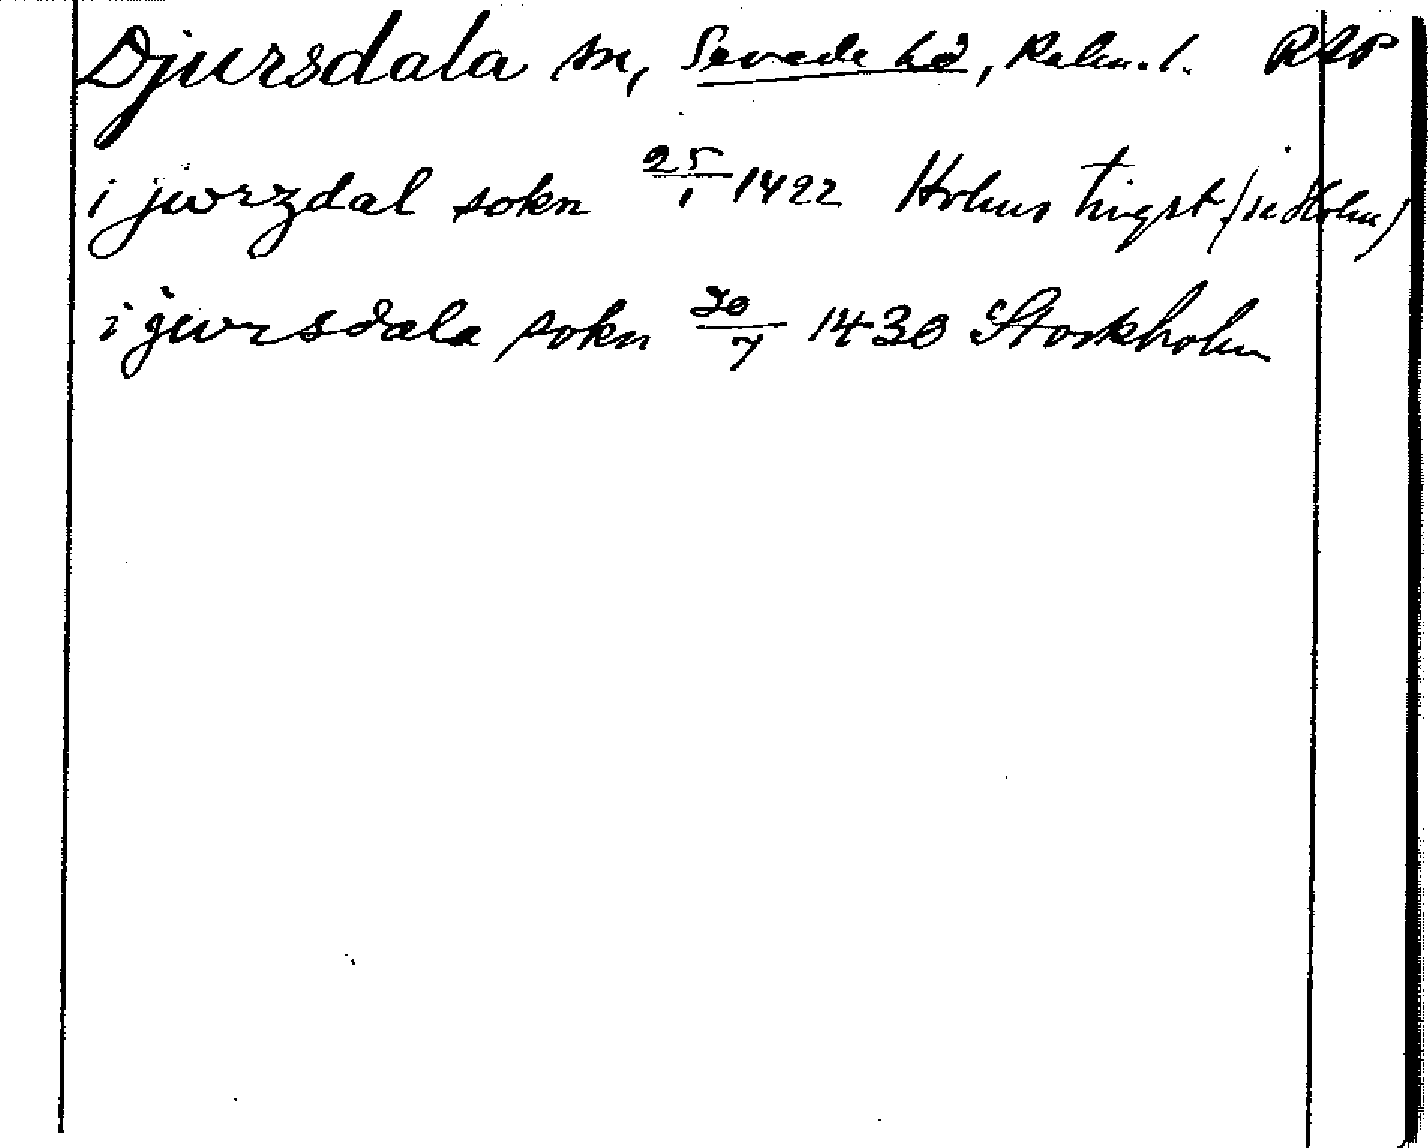 Djursdala sn, Sevede hd, Kalm. l. RAP
i jwrzdal sokn 25/1 1422 Holms tingst (se Holm)
i jwrsdala sokn 30/7 1430 Stockholm